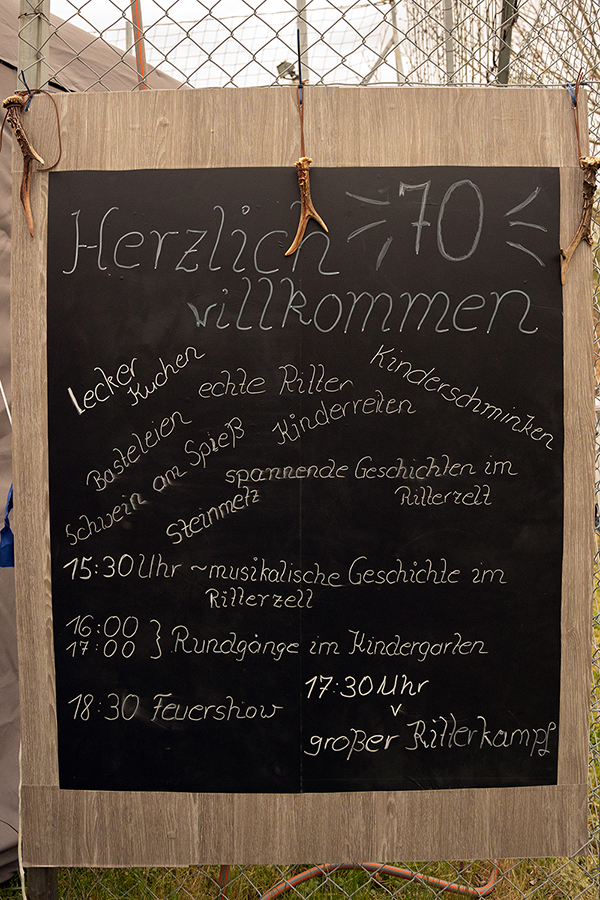 Herzlich 70
willkommen
Lecker
Kuchen
echte Ritter
Kinderschminken
Basteleien
Kinderreiten
Schwein am Spieß
spannende Geschichten im
Ritterzelt
Steinmetz
15:30 Uhr ~ musikalische Geschichte im
Ritterzelt
16:00
17:00 } Rundgänge im Kindergarten
17:30 Uhr
18:30 Feuershow
großer Ritterkampf